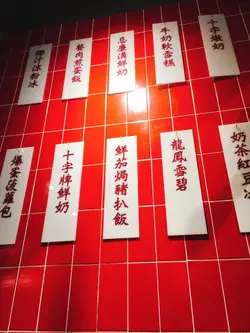 椰汁涼粉冰
餐肉煎蛋飯
忌廉溝鮮奶
牛奶軟雪糕
十字燉奶
爆蛋菠蘿包
十字牌鮮奶
鮮茄焗豬扒飯
龍鳳雪碧
奶茶紅豆冰